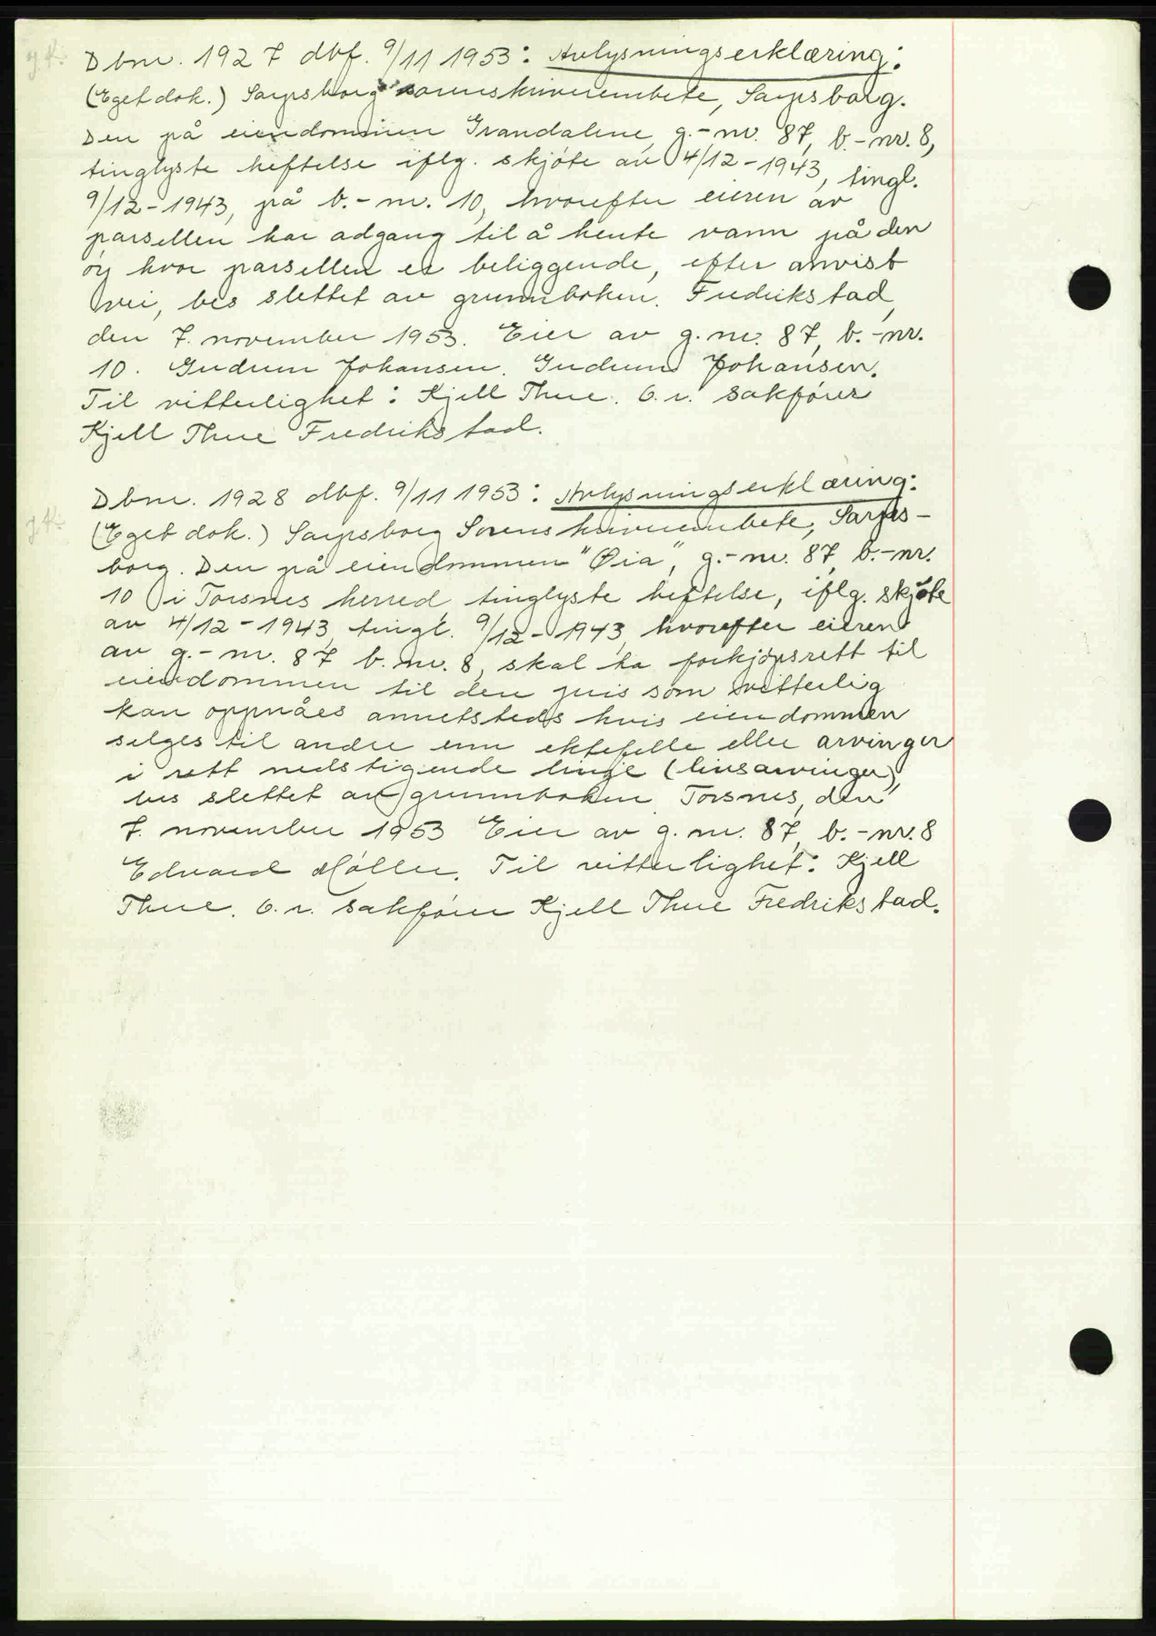 Dbnr. 1927 dbf. 9/11 1953: Avlysningserklæring:
(Eget dok.) Sarpsborg sorenskriverembete, Sarpsborg.
Den på eiendommen Grandalene, g.-nr. 87, b.-nr. 8,
tinglyste heftelse iflg. skjøte av 4/12-1943, tingl.
9/12-1943, på b.-nr. 10, hvorefter eieren av
parsellen har adgang til å hente vann på den
øy hvor parsellen er beliggende, efter anvist
vei, bes slettet av grunnboken. Fredrikstad,
den 7. november 1953. Eier av g.nr. 87, b.-nr.
10. Gudrun Johansen. Gudrun Johansen.
Til vitterlighet: Kjell Thue. o.r. sakfører
Kjell Thue Fredrikstad.
Dbnr. 1928 dbf. 9/11 1953: Avlysningserklæring:
(Eget dok.) Sarpsborg Sorenskriverembete, Sarps-
borg. Den på eiendommen "Øia", g.-nr. 87, b.-nr.
10 i Torsnes herred tinglyste heftelse, iflg. skjøte
av 4/12-1943, tingl. 9/12-1943, hvorefter eieren
av g.-nr. 87 b.nr. 8, skal ha forkjøpsrett til
eiendommen til den pris som vitterlig
kan oppnåes annetsteds hvis eiendommen
selges til andre enn ektefelle eller arvinger
i rett nedstigende linje (livsarvinger),
bes slettet av grunnboken. Torsnes, den
7. november 1953 Eier av g.nr. 87, b.-nr. 8
Edvard Møller. Til vitterlighet: Kjell
Thue. o.r. sakfører Kjell Thue Fredrikstad.